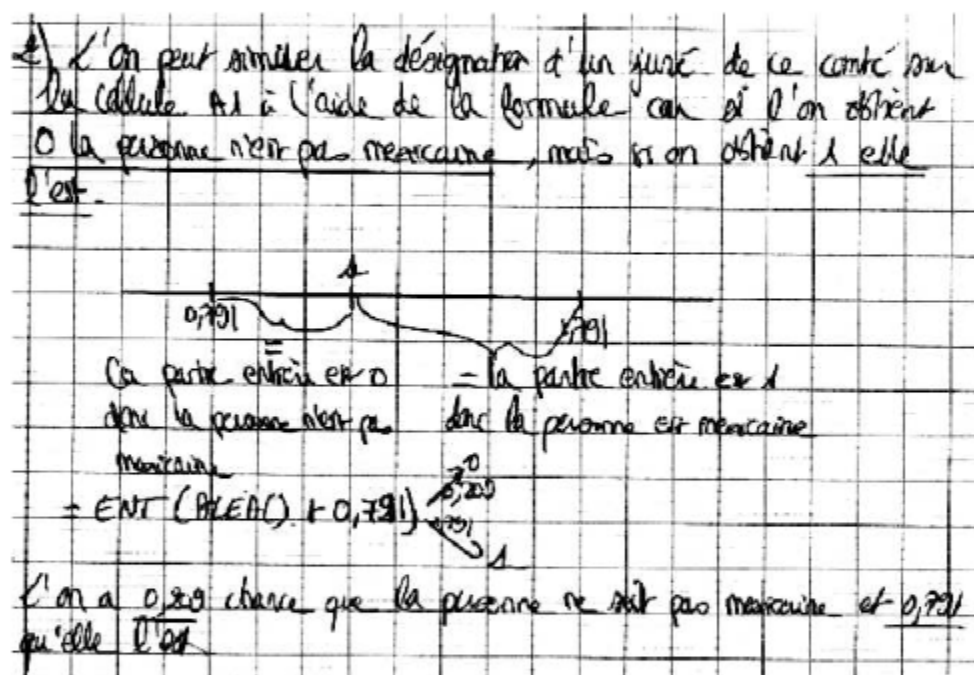 2) L'on peut simuler la désignation d'un juré de ce comté sur
la cellule A1 à l'aide de la formule car si l'on obtient
0 la personne n'est pas mexicaine, mais si on obtient 1 elle
l'est.
1
0,791 1,791
la partie entière est 0 = la partie entière est 1
donc la personne n'est pas donc la personne est mexicaine
mexicaine
0
= ENT (ALEA() + 0,791) 0,209
0,791
1
L'on a 0,209 chance que la personne ne soit pas mexicaine et 0,791
qu'elle l'est